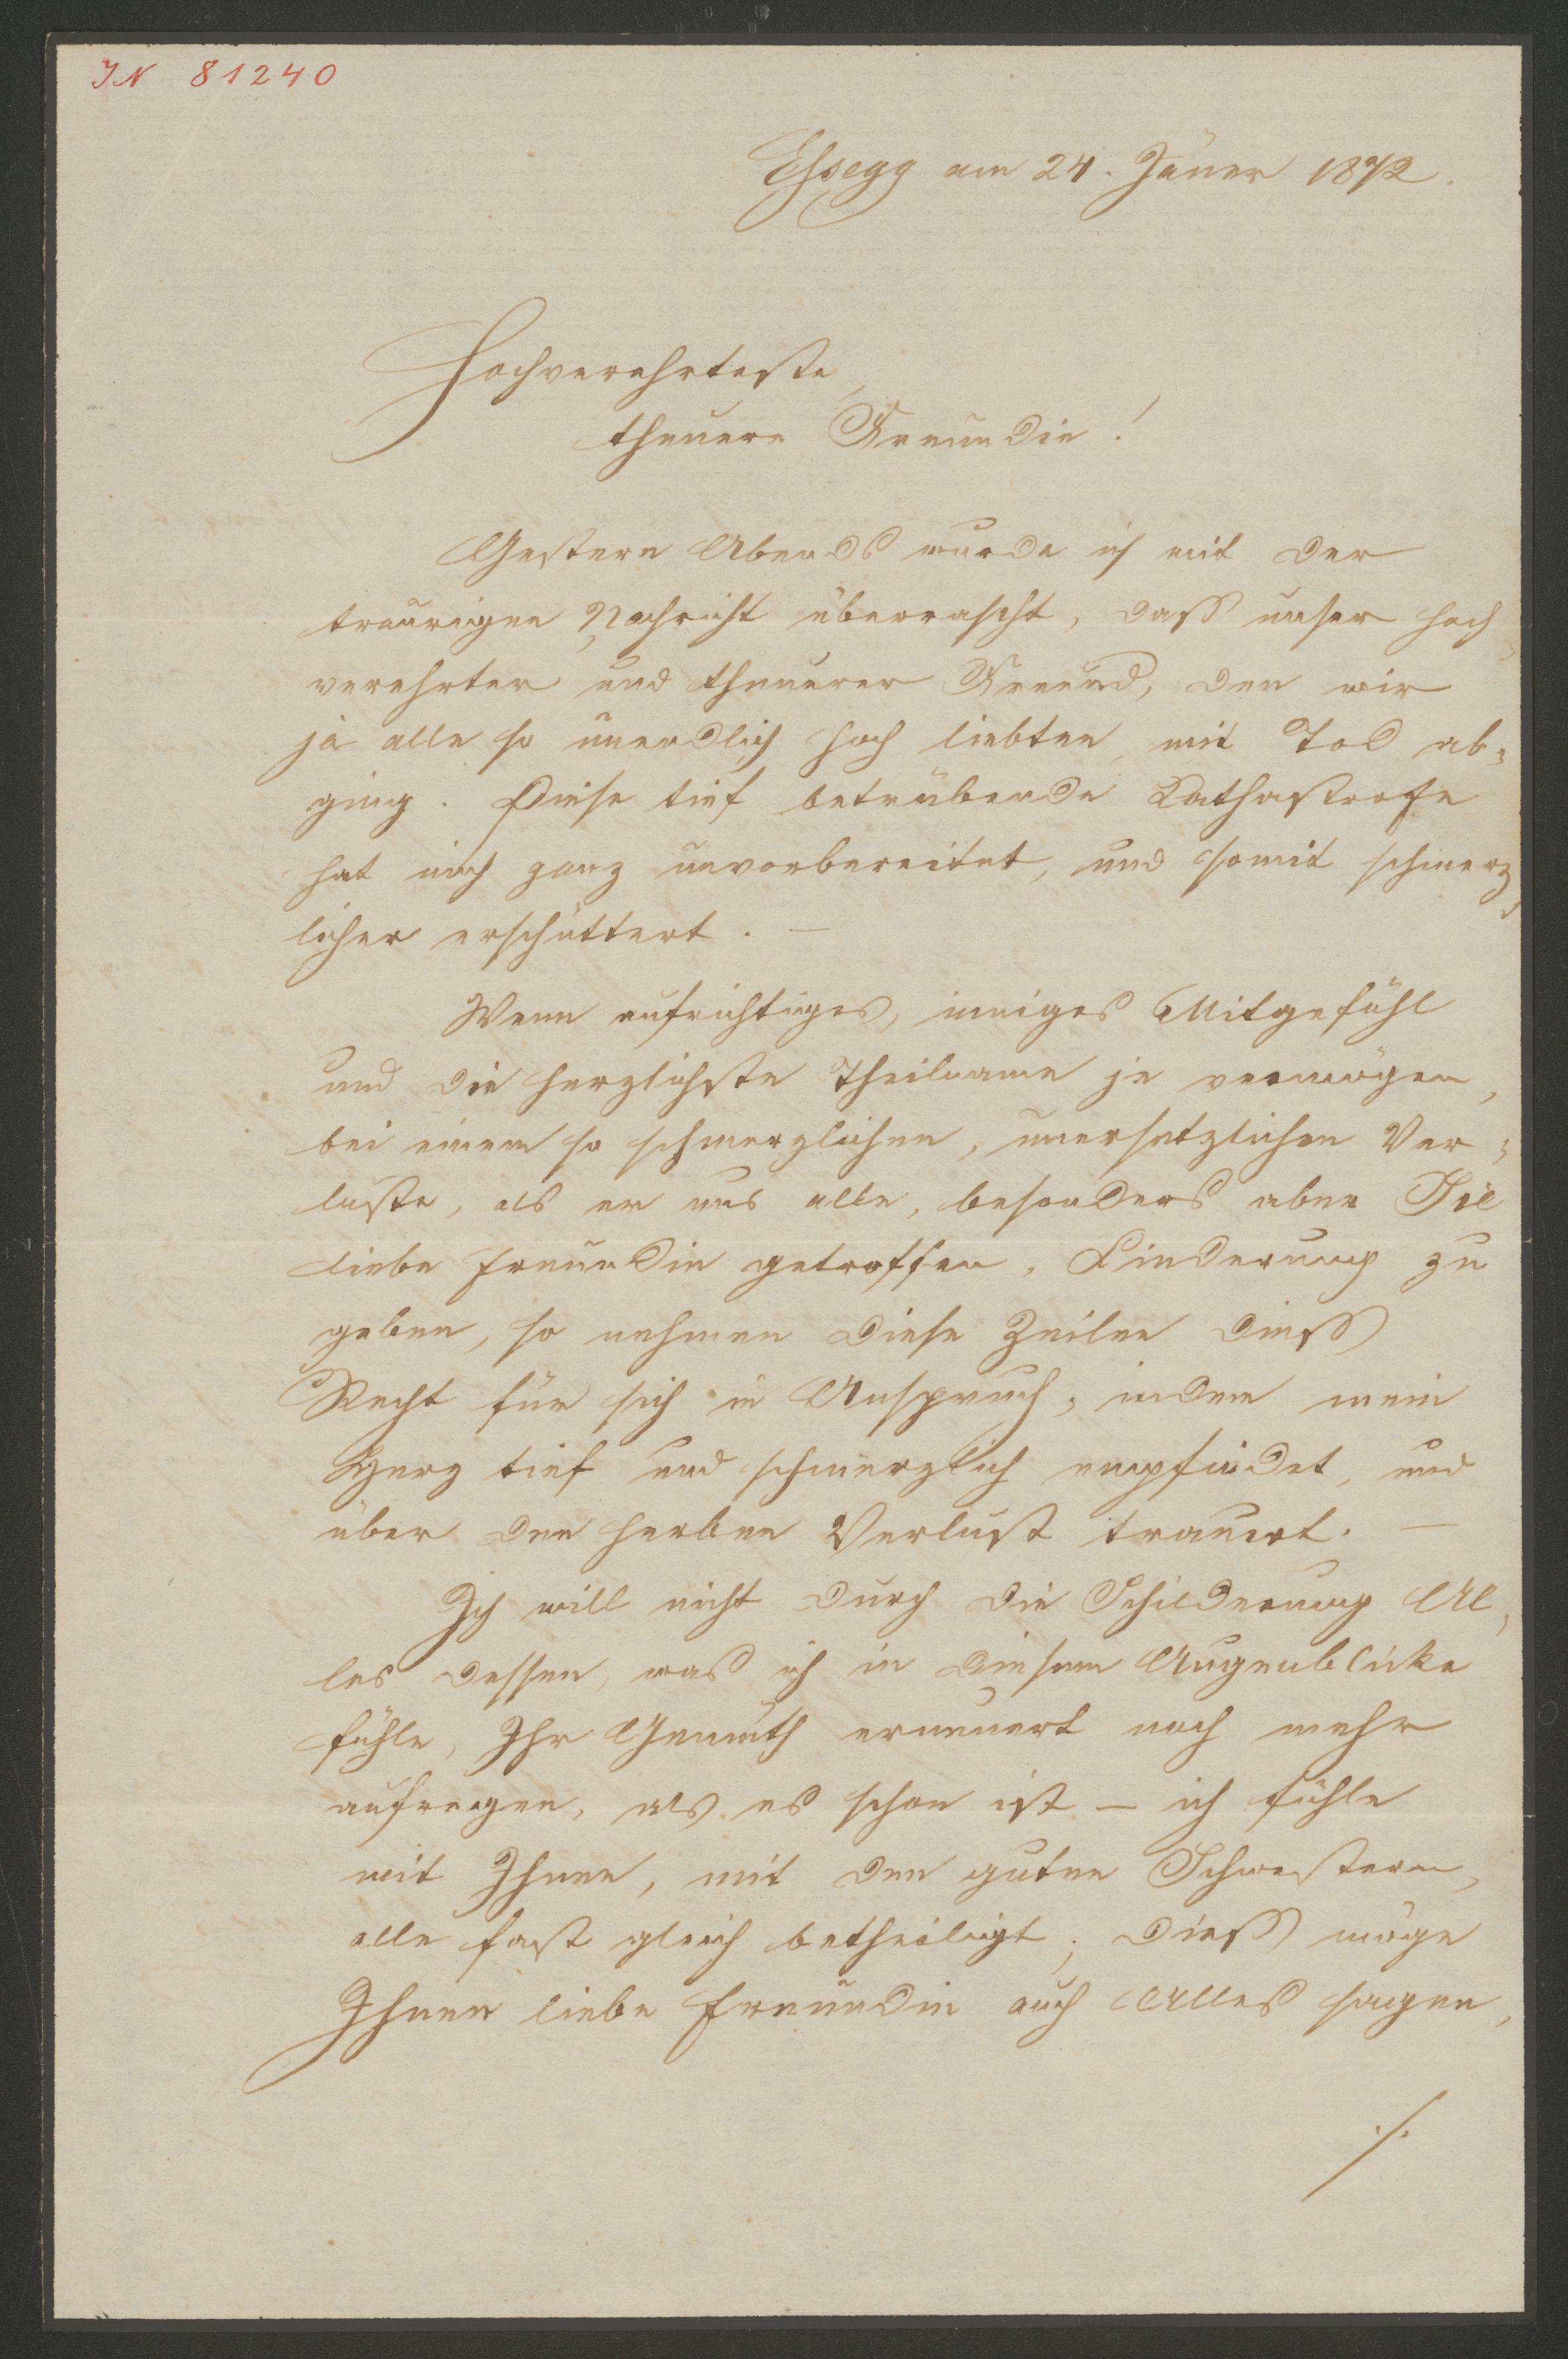 IN 81240
Essegg am 24. Jäner 1872.
Hochverehrteste,
theuere Freundin!
Gestern Abends wurde ich mit der
traurigen Nachricht überrascht, dass unser hoch-
verehrter und theuerer Freund, den wir
ja alle so unendlich hoch liebten, mit Tod ab-
ging. Diese tief betrübende Kathastrofe
hat mich ganz unvorbereitet, und somit schmerz-
licher erschüttert. —
Wenn aufrichtiges, inniges Mitgefühl
und die herzlichste Theilname je vermögen,
bei einem so schmerzlichen, unersetzlichen Ver-
luste, als er uns alle, besonders aber Sie
liebe Freundin getroffen, Linderung zu
geben, so nehmen diese Zeilen diess
Recht für sich in Anspruch, indem mein
Herz tief und schmerzlich empfindet, und
über den herben Verlust trauert. —
Ich will nicht durch die Schilderung Al-
les dessen, was ich in diesem Augenblicke
fühle, Ihr Gemüth erneuert noch mehr
aufregen, als es schon ist – ich fühle
mit Ihnen, mit den guten Schwestern,
alle fast gleich betheiligt; diess möge
Ihnen liebe Freundin auch Alles sagen,
./.